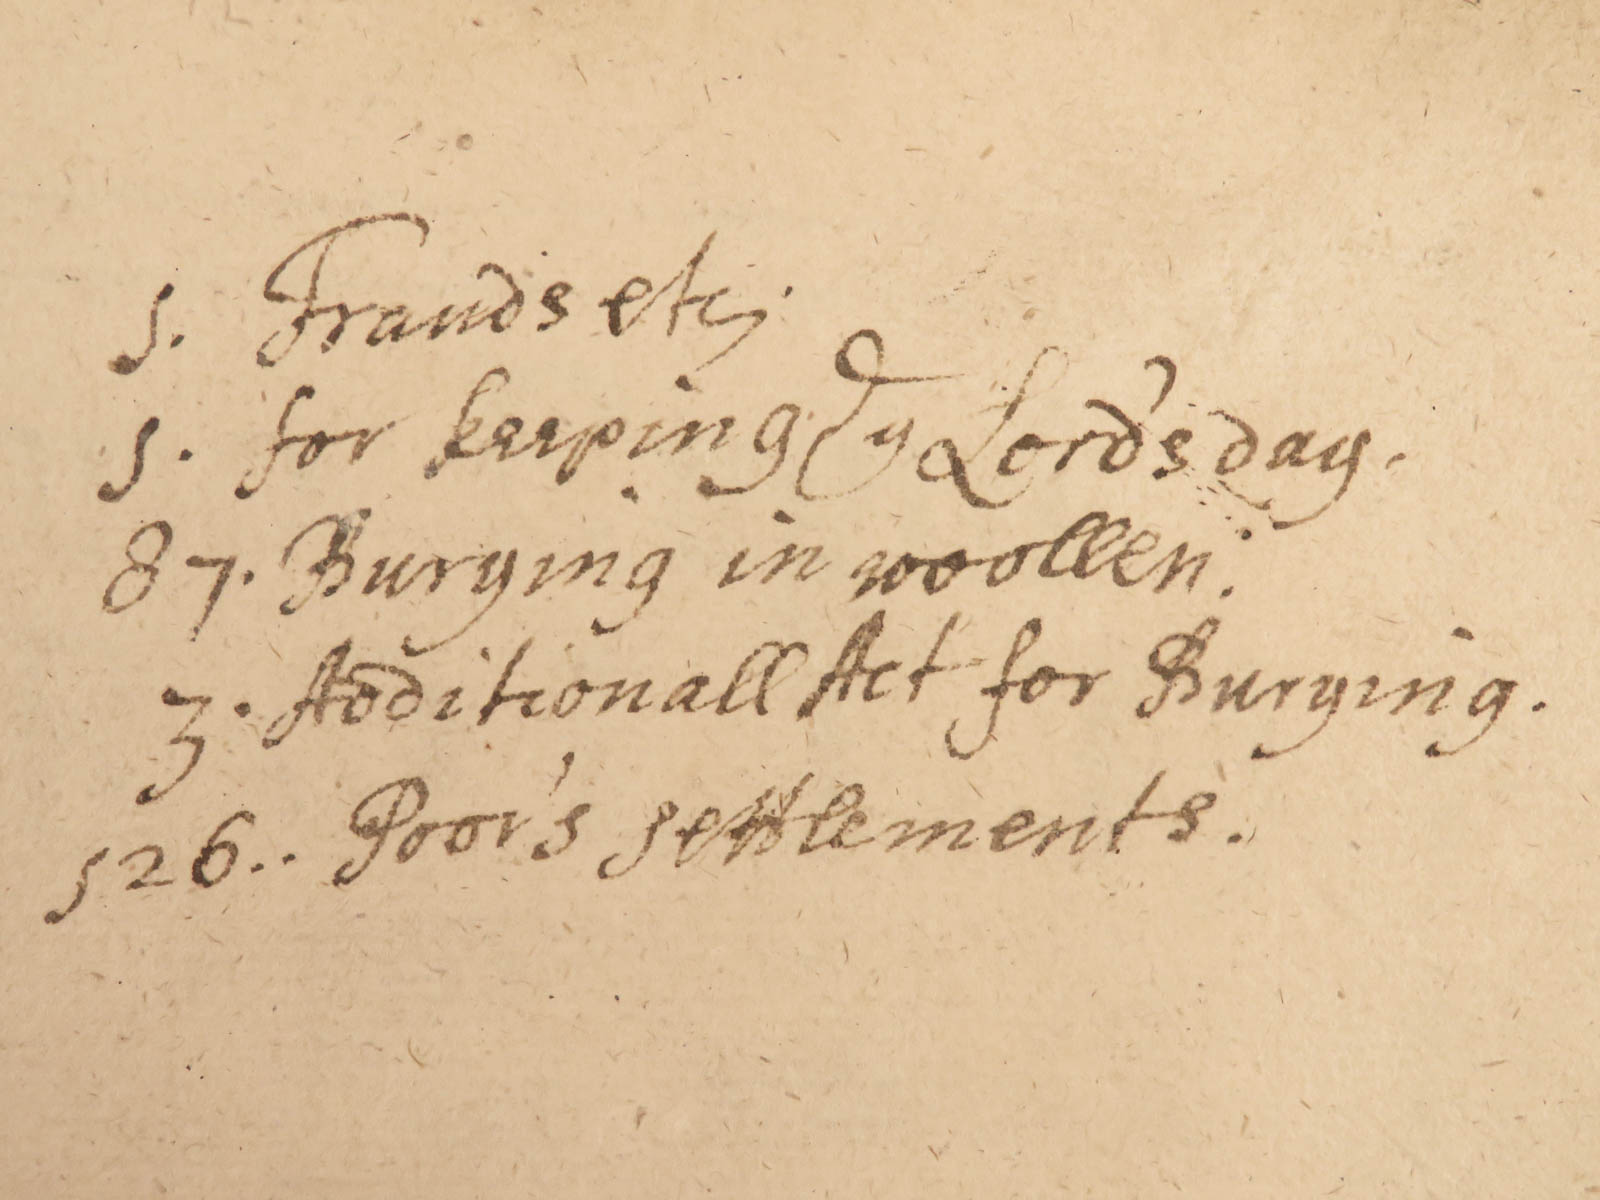 5. Frauds etc;
5. for keeping ye Lord's day.
87. Burying in woollen.
3. Additionall Act for Burying.
526.. Poor's settlements.